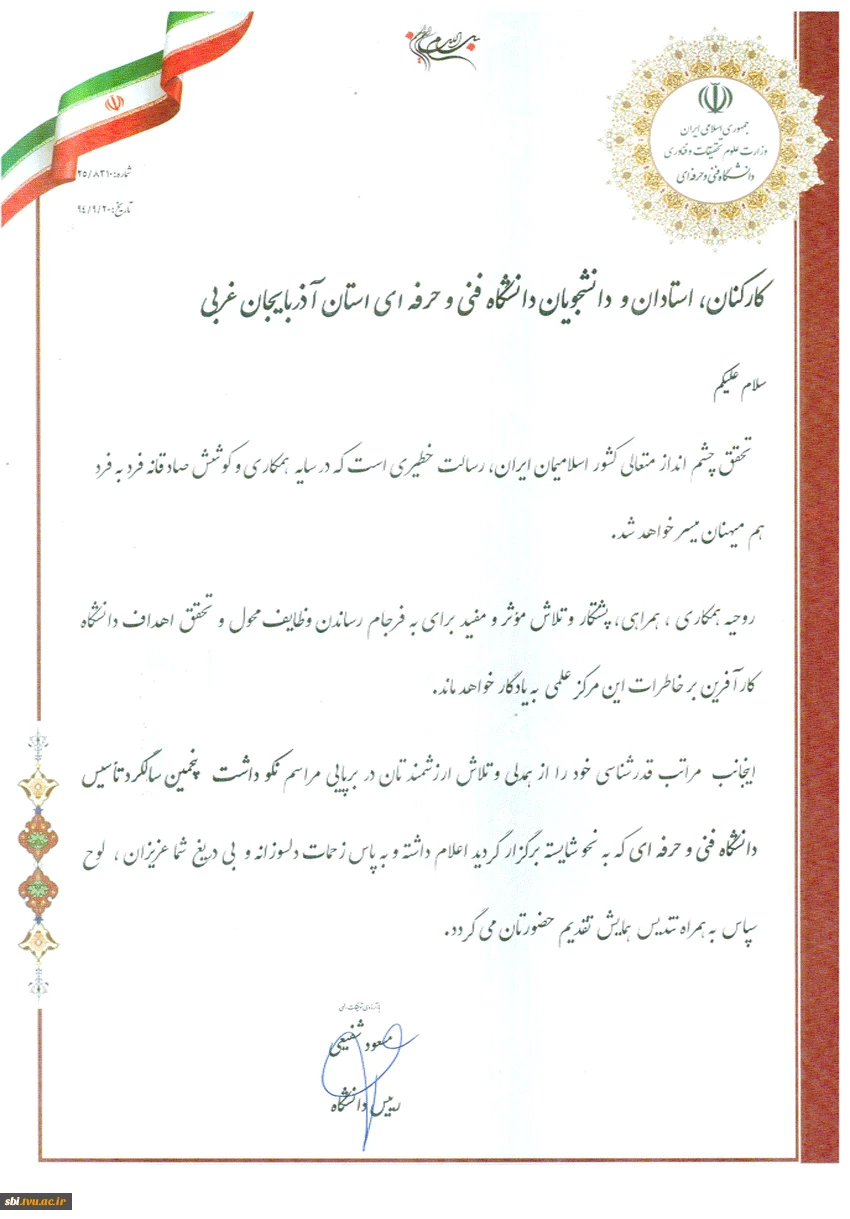 بسم الله الرحمن الرحیم
جمهوری اسلامی ایران
وزارت علوم تحقیقات و فناوری
دانشگاه فنی و حرفه ای
شماره: ۲۵/۸۳۱۰
تاریخ: ۹۴/۹/۲۰
کارکنان، استادان و دانشجویان دانشگاه فنی و حرفه ای استان آذربایجان غربی
سلام علیکم
تحقق چشم انداز متعالی کشور اسلامیمان ایران، رسالت خطیری است که در سایه همکاری و کوشش صادقانه فرد به فرد
هم میهنان میسر خواهد شد.
روحیه همکاری ، همراهی، پشتکار و تلاش مؤثر و مفید برای به فرجام رساندن وظایف محول و تحقق اهداف دانشگاه
کارآفرین بر خاطرات این مرکز علمی به یادگار خواهد ماند.
اینجانب مراتب قدرشناسی خود را از همدلی و تلاش ارزشمندتان در برپایی مراسم نکو داشت پنجمین سالگرد تأسیس
دانشگاه فنی و حرفه ای که به نحو شایسته برگزار گردید اعلام داشته و به پاس زحمات دلسوزانه و بی دریغ شما عزیزان ، لوح
سپاس به همراه تندیس همایش تقدیم حضورتان می گردد.
با آرزوی توفیقات الهی
مسعود شفیعی
رییس دانشگاه
sbi.tvu.ac.ir